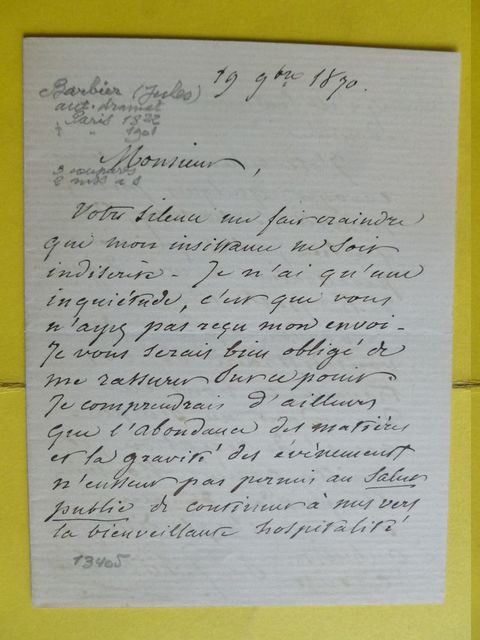 19 9bre 1870.
Barbier (Jules)
aut. dramat
Paris 1822
† " 1901
Monsieur,
2 mss a s
Votre silence me fait craindre
que mon insistance ne soit
indiscrète - Je n'ai qu'une
inquiétude, c'est que vous
n'ayez pas reçu mon envoi -
Je vous serais bien obligé de
me rassurer sur ce point.
Je comprendrais d'ailleurs
que l'abondance des matières
et la gravité des évènements
n'eussent pas permis au Salut
public de continuer à mes vers
la bienveillante hospitalité
13405